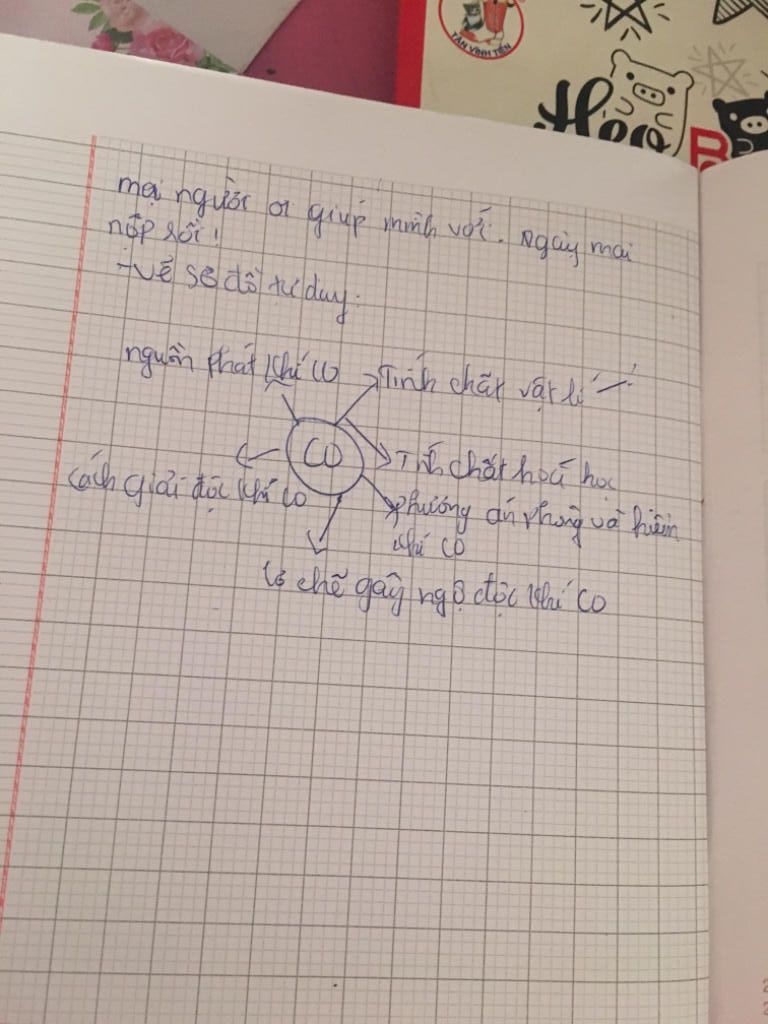 TÂN VĨNH TIẾN
Heo
mọi người ơi giúp mình với. Ngày mai
nộp rồi!
+vẽ sơ đồ tư duy.
nguồn phát khí CO
Tính chất vật lí
CO
Tính chất hoá học
cách giải độc khí CO
phương án phòng và hiểm
khí CO
cơ chế gây ngộ độc khí CO